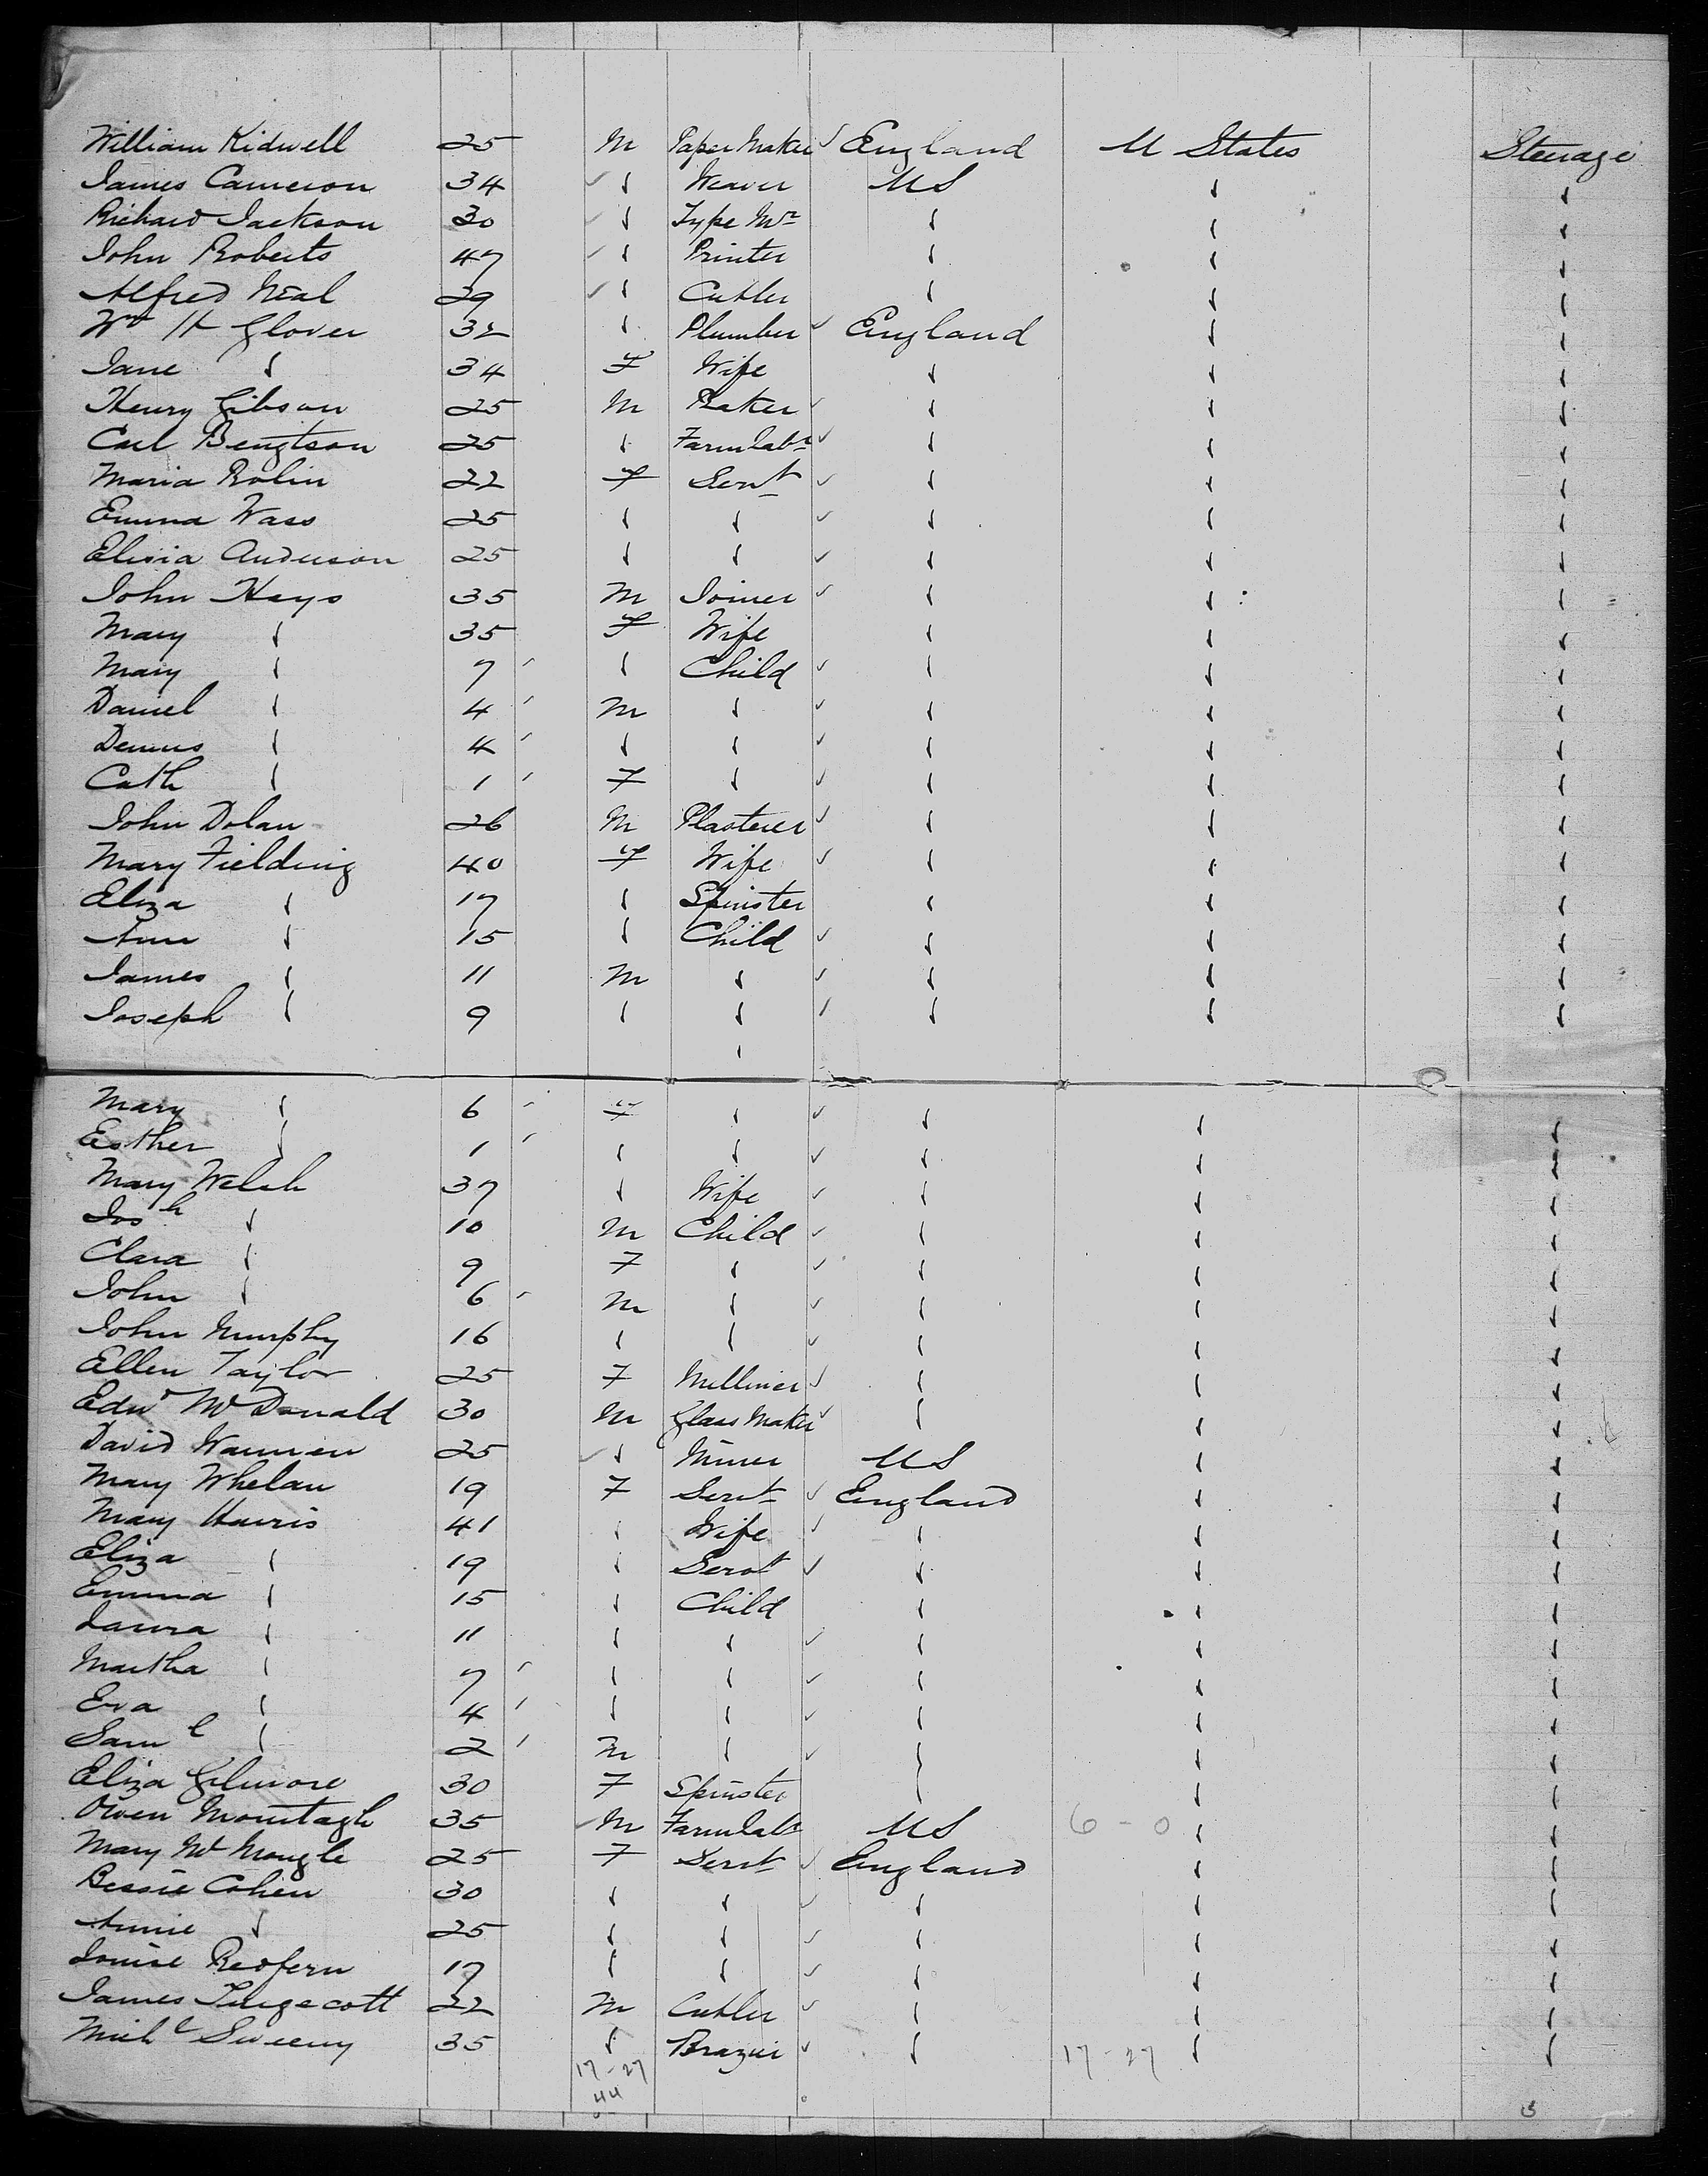 William Kidwell 25 M Paper Maker ✓ England U States Steerage
James Cameron 34 ✓ " Weaver US " "
Richard Jackson 30 ✓ " Type Mr " " "
John Roberts 47 ✓ " Printer " " "
Alfred Neal 29 ✓ " Cutler " " "
Wm H Glover 32 " Plumber ✓ England " "
Jane " 34 F Wife " " "
Henry Gibson 25 M Baker ✓ " " "
Carl Bengtson 25 " Farm Labr ✓ " " "
Maria Rolin 22 F Servt ✓ " " "
Emma Wass 25 " " ✓ " " "
Elisia Anderson 25 " " ✓ " " "
John Hays 35 M Joiner ✓ " " "
Mary " 35 F Wife " " "
Mary " 7 " Child ✓ " " "
Daniel " 4 M " ✓ " " "
Dennis " 4 " " ✓ " " "
Cath " 1 F " ✓ " " "
John Dolan 26 M Plasterer ✓ " " "
Mary Fielding 40 F Wife ✓ " " "
Eliza " 17 " Spinster " " "
Ann " 15 " Child ✓ " " "
James " 11 M " ✓ " " "
Joseph " 9 " " ✓ " " "
"
Mary " 6 F " ✓ " " "
Esther " 1 " " ✓ " " "
Mary Welsh 37 " Wife ✓ " " "
Josh " 10 M Child ✓ " " "
Clara " 9 F " ✓ " " "
John " 6 M " ✓ " " "
John Murphy 16 " " ✓ " " "
Ellen Taylor 25 F Milliner ✓ " " "
Edwd McDonald 30 M Glass Maker ✓ " " "
David Wannen 25 ✓ " Miner US " "
Mary Whelan 19 F Servt ✓ England " "
Mary Harris 41 " Wife ✓ " " "
Eliza " 19 " Servt ✓ " " "
Emma " 15 " Child " " "
Laura " 11 " " ✓ " " "
Martha " 7 " " ✓ " " "
Eva " 4 " " ✓ " " "
Saml " 2 M " ✓ " " "
Eliza Gilmore 30 F Spinster " " "
Owen Mountagh 35 ✓ M Farm Labr US 6 - 0 " "
Mary McMongle 25 F Servt ✓ England " "
Bessie Cohen 30 " " ✓ " " "
Annie " 25 " " ✓ " " "
Louise Redfern 17 " " ✓ " " "
James 22 M Cutler ✓ " " "
Michl Sweeny 35 " Brazier ✓ " 17-27 " "
17-27
44